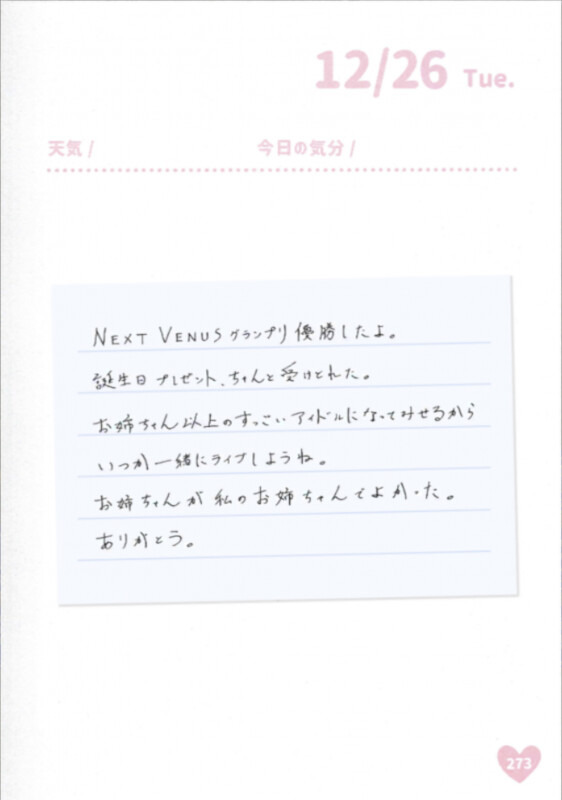 12/26 Tue.
天気/ 今日の気分/
NEXT VENUSグランプリ優勝したよ。
誕生日プレゼント、ちゃんと受けとれた。
お姉ちゃん以上のすっごいアイドルになってみせるから
いつか一緒にライブしようね。
お姉ちゃんが私のお姉ちゃんでよかった。
ありがとう。
273